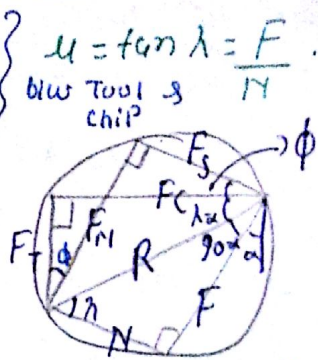 μ = tan λ = F/N .
b/w Tool &
chip
Fs
φ
Fc
λα
90-α
α
FT
φ
FN
R
F
λ
N